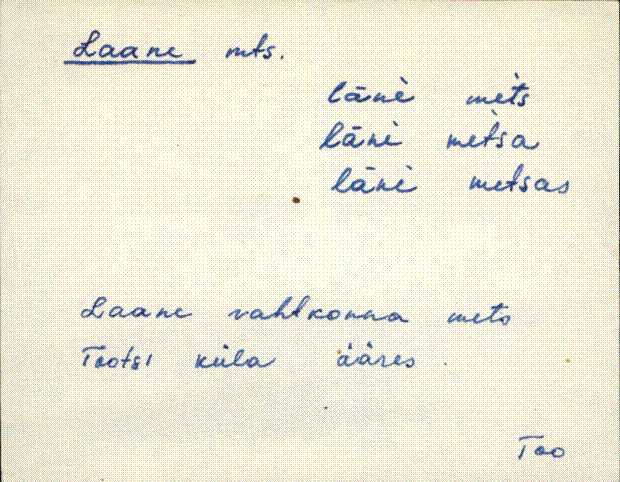 Laane mts.
lānè mèts
lānè mètsa
lānè metsas
Laane vahtkonna mets
Tootsi küla ääres.
Too